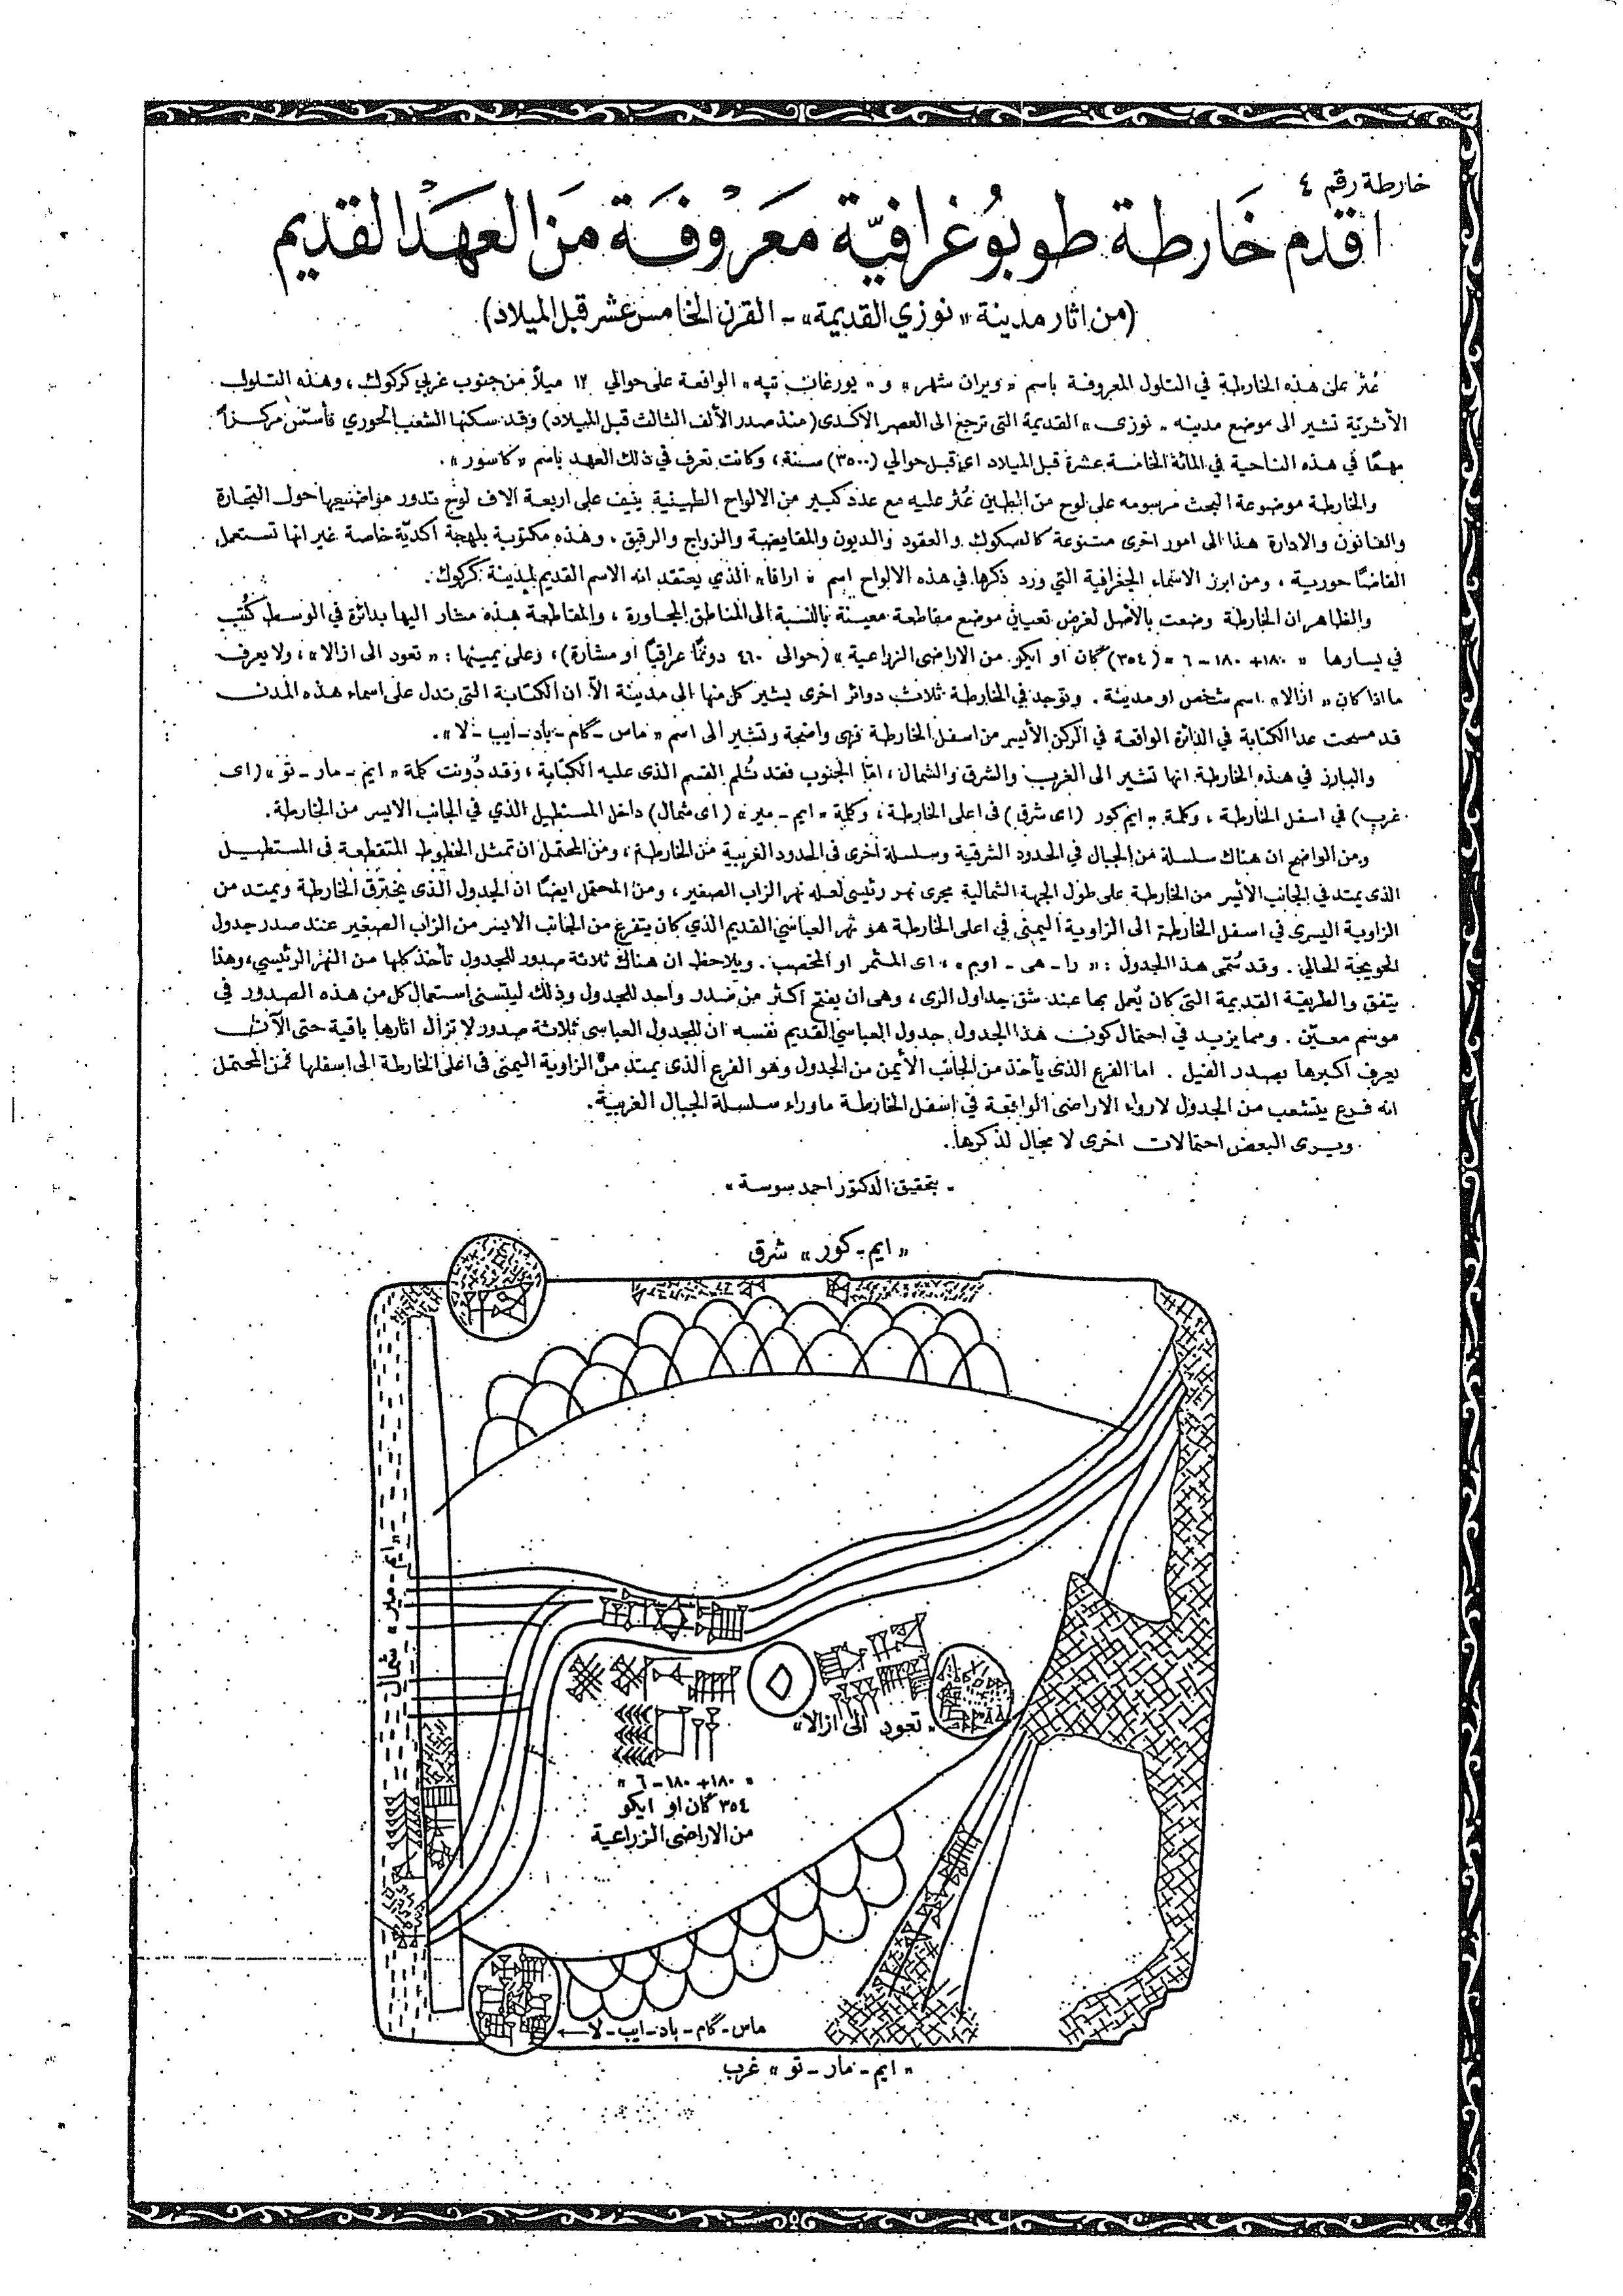 خارطة رقم ٤
اقدم خارطة طوبوغرافية معروفة من العهد القديم
(من اثار مدينة «نوزي القديمة» - القرن الخامس عشر قبل الميلاد)
عُثر على هذه الخارطة في التلول المعروفة باسم «ويران شهر» و «يورغان تپه» الواقعة على حوالي ١٢ ميلاً من جنوب غربي كركوك، وهذه التلول
الأثرية تشير الى موضع مدينه «نوزى» القديمة التى ترجع الى العصر الاكدى (منذ صدر الألف الثالث قبل الميلاد) وقد سكنها الشعب الحوري فأسس مركزاً
مهمًا في هذه الناحية في المائة الخامسة عشرة قبل الميلاد اي قبل حوالي (٣٥٠٠) سنة، وكانت تعرف في ذلك العهد باسم «كاسور».
والخارطة موضوعة البحث مرسومه على لوح من الطين عُثر عليه مع عدد كبير من الالواح الطينية ينيف على اربعة الاف لوح تدور مواضيعها حول التجارة
والقانون والادارة هذا الى امور اخرى متنوعة كالصكوك والعقود والديون والمقايضية والزواج والرقيق، وهذه مكتوبة بلهجة اكديّة خاصة غير انها تستعمل
الفاضًا حورية، ومن ابرز الاسماء الجغرافية التي ورد ذكرها في هذه الالواح اسم «ارافا» الذي يعتقد انه الاسم القديم لمدينة كركوك.
والظاهر ان الخارطة وضعت بالأصل لغرض تعيين موضع مقاطعة معينة بالنسبة الى المناطق المجاورة، والمقاطعة هذه مشار اليها بدائرة في الوسط كُتب
في يسارها «١٨٠+١٨٠-٦ = (٣٥٤) گان او ايكو من الاراضى الزراعية» (حوالى ٤٦٠ دونمًا عراقيًا او مشارة)، وعلى يمينها: «تعود الى ازالا»، ولا يعرف
ما اذا كان «ازالا» اسم شخص او مدينة. وتوجد في الخارطة ثلاث دوائر اخرى يشير كل منها الى مدينة الاّ ان الكتابة التى تدل على اسماء هذه المدن
قد مسحت عدا الكتابة في الدائرة الواقعة في الركن الأيسر من اسفل الخارطة فهى واضحة وتشير الى اسم «ماس-گام-باد-ايب-لا».
والبارز في هذه الخارطة انها تشير الى الغرب والشرق والشمال، امّا الجنوب فقد ثُلم القسم الذى عليه الكتابة، وقد دُونت كلمة «ايم-مار-تو» (اى
غرب) في اسفل الخارطة، وكلمة «ايم كور (اى شرق) فى اعلى الخارطة، وكلمة «ايم-مير» (اى شمال) داخل المستطيل الذي في الجانب الايسر من الخارطة.
ومن الواضح ان هناك سلسلة من الجبال في الحدود الشرقية وسلسلة أخرى فى الحدود الغربية من الخارطة، ومن المحتمل ان تمثل الخطوط المتقطعة فى المستطيل
الذى يمتد في الجانب الأيسر من الخارطة على طول الجهة الشمالية مجرى نهر رئيسى لعله نهر الزاب الصغير، ومن المحتمل ايضًا ان الجدول الذى يخترق الخارطة ويمتد من
الزاوية اليسرى في اسفل الخارطة الى الزاوية اليمنى في اعلى الخارطة هو نهر العباسي القديم الذي كان يتفرع من الجانب الايسر من الزاب الصغير عند صدر جدول
الحويجة الحالي. وقد سُمّى هذا الجدول: «را-هى-اوم»، اى المثمر او المخصب. ويلاحظ ان هناك ثلاثة صدور للجدول تأخذ كلها من النهر الرئيسي، وهذا
يتفق والطريقة القديمة التى كان يُعمل بها عند شق جداول الري، وهى ان يفتح اكثر من صدر واحد للجدول وذلك ليتسنى استعمال كل من هذه الصدور في
موسم معيّن. ومما يزيد في احتمال كون هذا الجدول جدول العباسي القديم نفسه ان للجدول العباسى ثلاثة صدور لا تزال اثارها باقية حتى الآن
يعرف اكبرها بصدر الفيل. اما الفرع الذى يأخذ من الجانب الأيمن من الجدول وهو الفرع الذى يمتد من الزاوية اليمنى فى اعلى الخارطة الى اسفلها فمن المحتمل
انه فرع يتشعب من الجدول لارواء الاراضى الواقعة في اسفل الخارطة ماوراء سلسلة الجبال الغربية.
ويرى البعض احتمالات اخرى لا مجال لذكرها.
«بتحقيق الدكتور احمد سوسة»
«ايم-كور» شرق
«ايم-مير» شمال
«تعود الى ازالا»
«١٨٠+١٨٠-٦»
٣٥٤ گان او ايكو
من الاراضى الزراعية
ماس-گام-باد-ايب-لا
«ايم-مار-تو» غرب